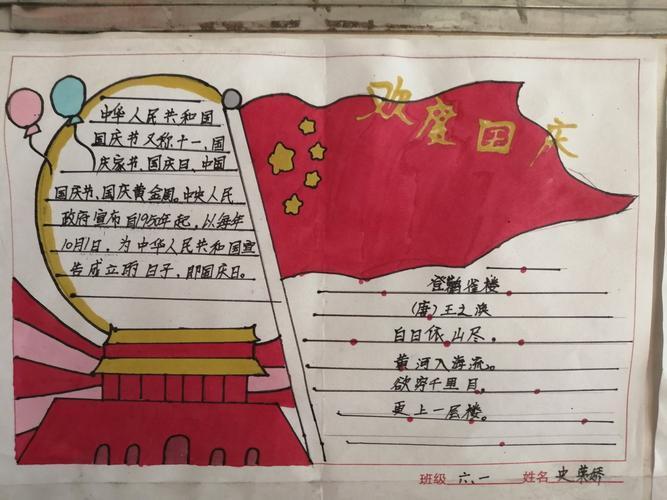 欢度国庆
中华人民共和国
国庆节又称十一、国
庆家节、国庆日、中国
国庆节、国庆黄金周。中央人民
政府宣布自1950年起，以每年
10月1日，为中华人民共和国宣
告成立的日子，即国庆日。
登鹳雀楼
(唐)王之涣
白日依山尽。
黄河入海流。
欲穷千里目，
更上一层楼。
班级 六.一 姓名 史荣娇